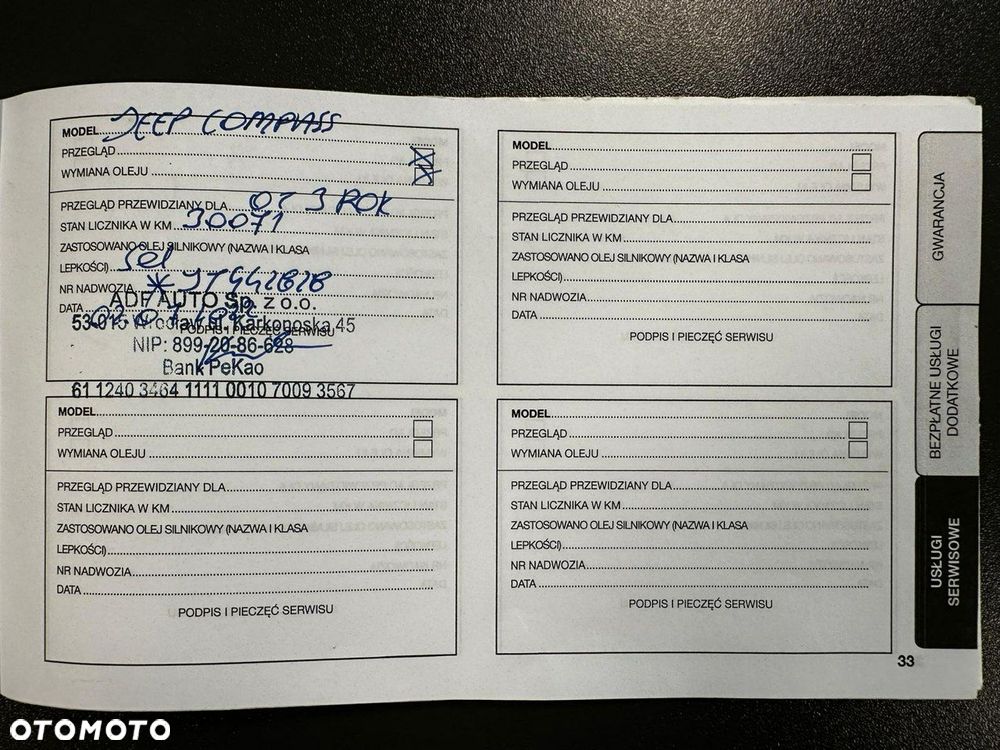 MODEL JEEP COMPASS
PRZEGLĄD
WYMIANA OLEJU
PRZEGLĄD PRZEWIDZIANY DLA 3 ROK
STAN LICZNIKA W KM 30071
ZASTOSOWANO OLEJ SILNIKOWY (NAZWA I KLASA
LEPKOŚCI) Sel
NR NADWOZIA
ADF AUTO Sp. z o.o.
DATA
Wrocław, ul. Karkonoska 45
PODPIS I PIECZĘĆ SERWISU
NIP: 899-20-86-628
Bank PeKao
61 1240 3464 1111 0010 7009 3567
MODEL
PRZEGLĄD
WYMIANA OLEJU
PRZEGLĄD PRZEWIDZIANY DLA
STAN LICZNIKA W KM
ZASTOSOWANO OLEJ SILNIKOWY (NAZWA I KLASA
LEPKOŚCI)
NR NADWOZIA
DATA
PODPIS I PIECZĘĆ SERWISU
MODEL
PRZEGLĄD
WYMIANA OLEJU
PRZEGLĄD PRZEWIDZIANY DLA
STAN LICZNIKA W KM
ZASTOSOWANO OLEJ SILNIKOWY (NAZWA I KLASA
LEPKOŚCI)
NR NADWOZIA
DATA
PODPIS I PIECZĘĆ SERWISU
MODEL
PRZEGLĄD
WYMIANA OLEJU
PRZEGLĄD PRZEWIDZIANY DLA
STAN LICZNIKA W KM
ZASTOSOWANO OLEJ SILNIKOWY (NAZWA I KLASA
LEPKOŚCI)
NR NADWOZIA
DATA
PODPIS I PIECZĘĆ SERWISU
GWARANCJA
BEZPŁATNE USŁUGI
DODATKOWE
USŁUGI
SERWISOWE
33
OTOMOTO